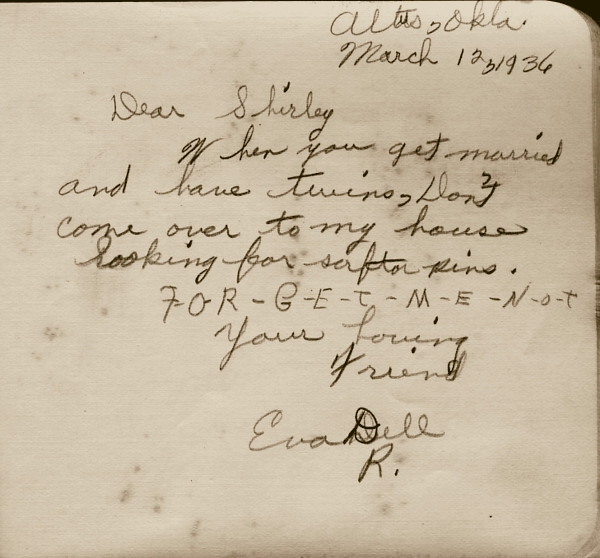 Altus, Okla.
March 12, 1936
Dear Shirley
When you get married
and have twins, Don't
come over to my house
looking for safta pins.
F-O-R-G-E-T-M-E-N-o-t
Your loving
Friend
Eva Dell
R.